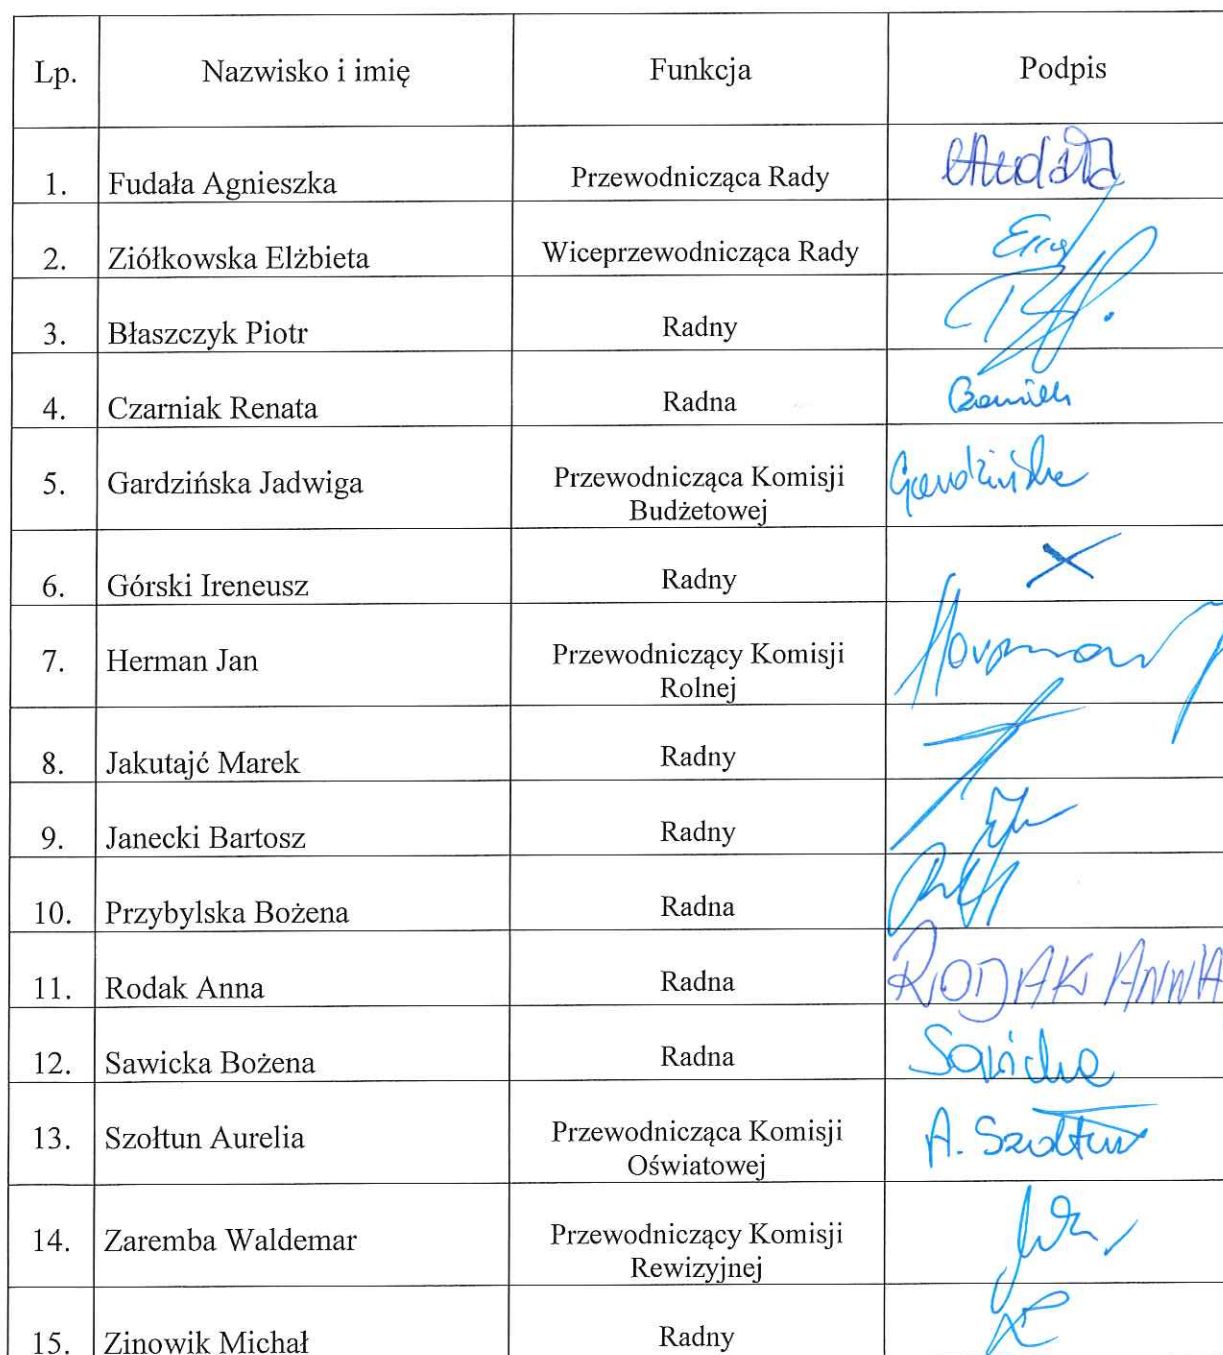 Lp. Nazwisko i imię Funkcja Podpis
1. Fudała Agnieszka Przewodnicząca Rady
2. Ziółkowska Elżbieta Wiceprzewodnicząca Rady
3. Błaszczyk Piotr Radny
4. Czarniak Renata Radna
5. Gardzińska Jadwiga Przewodnicząca Komisji Gardzińska
Budżetowej
6. Górski Ireneusz Radny X
7. Herman Jan Przewodniczący Komisji
Rolnej
8. Jakutajć Marek Radny
9. Janecki Bartosz Radny
10. Przybylska Bożena Radna
11. Rodak Anna Radna RODAK ANNA
12. Sawicka Bożena Radna Sawicka
13. Szołtun Aurelia Przewodnicząca Komisji A. Szołtun
Oświatowej
14. Zaremba Waldemar Przewodniczący Komisji
Rewizyjnej
15. Zinowik Michał Radny